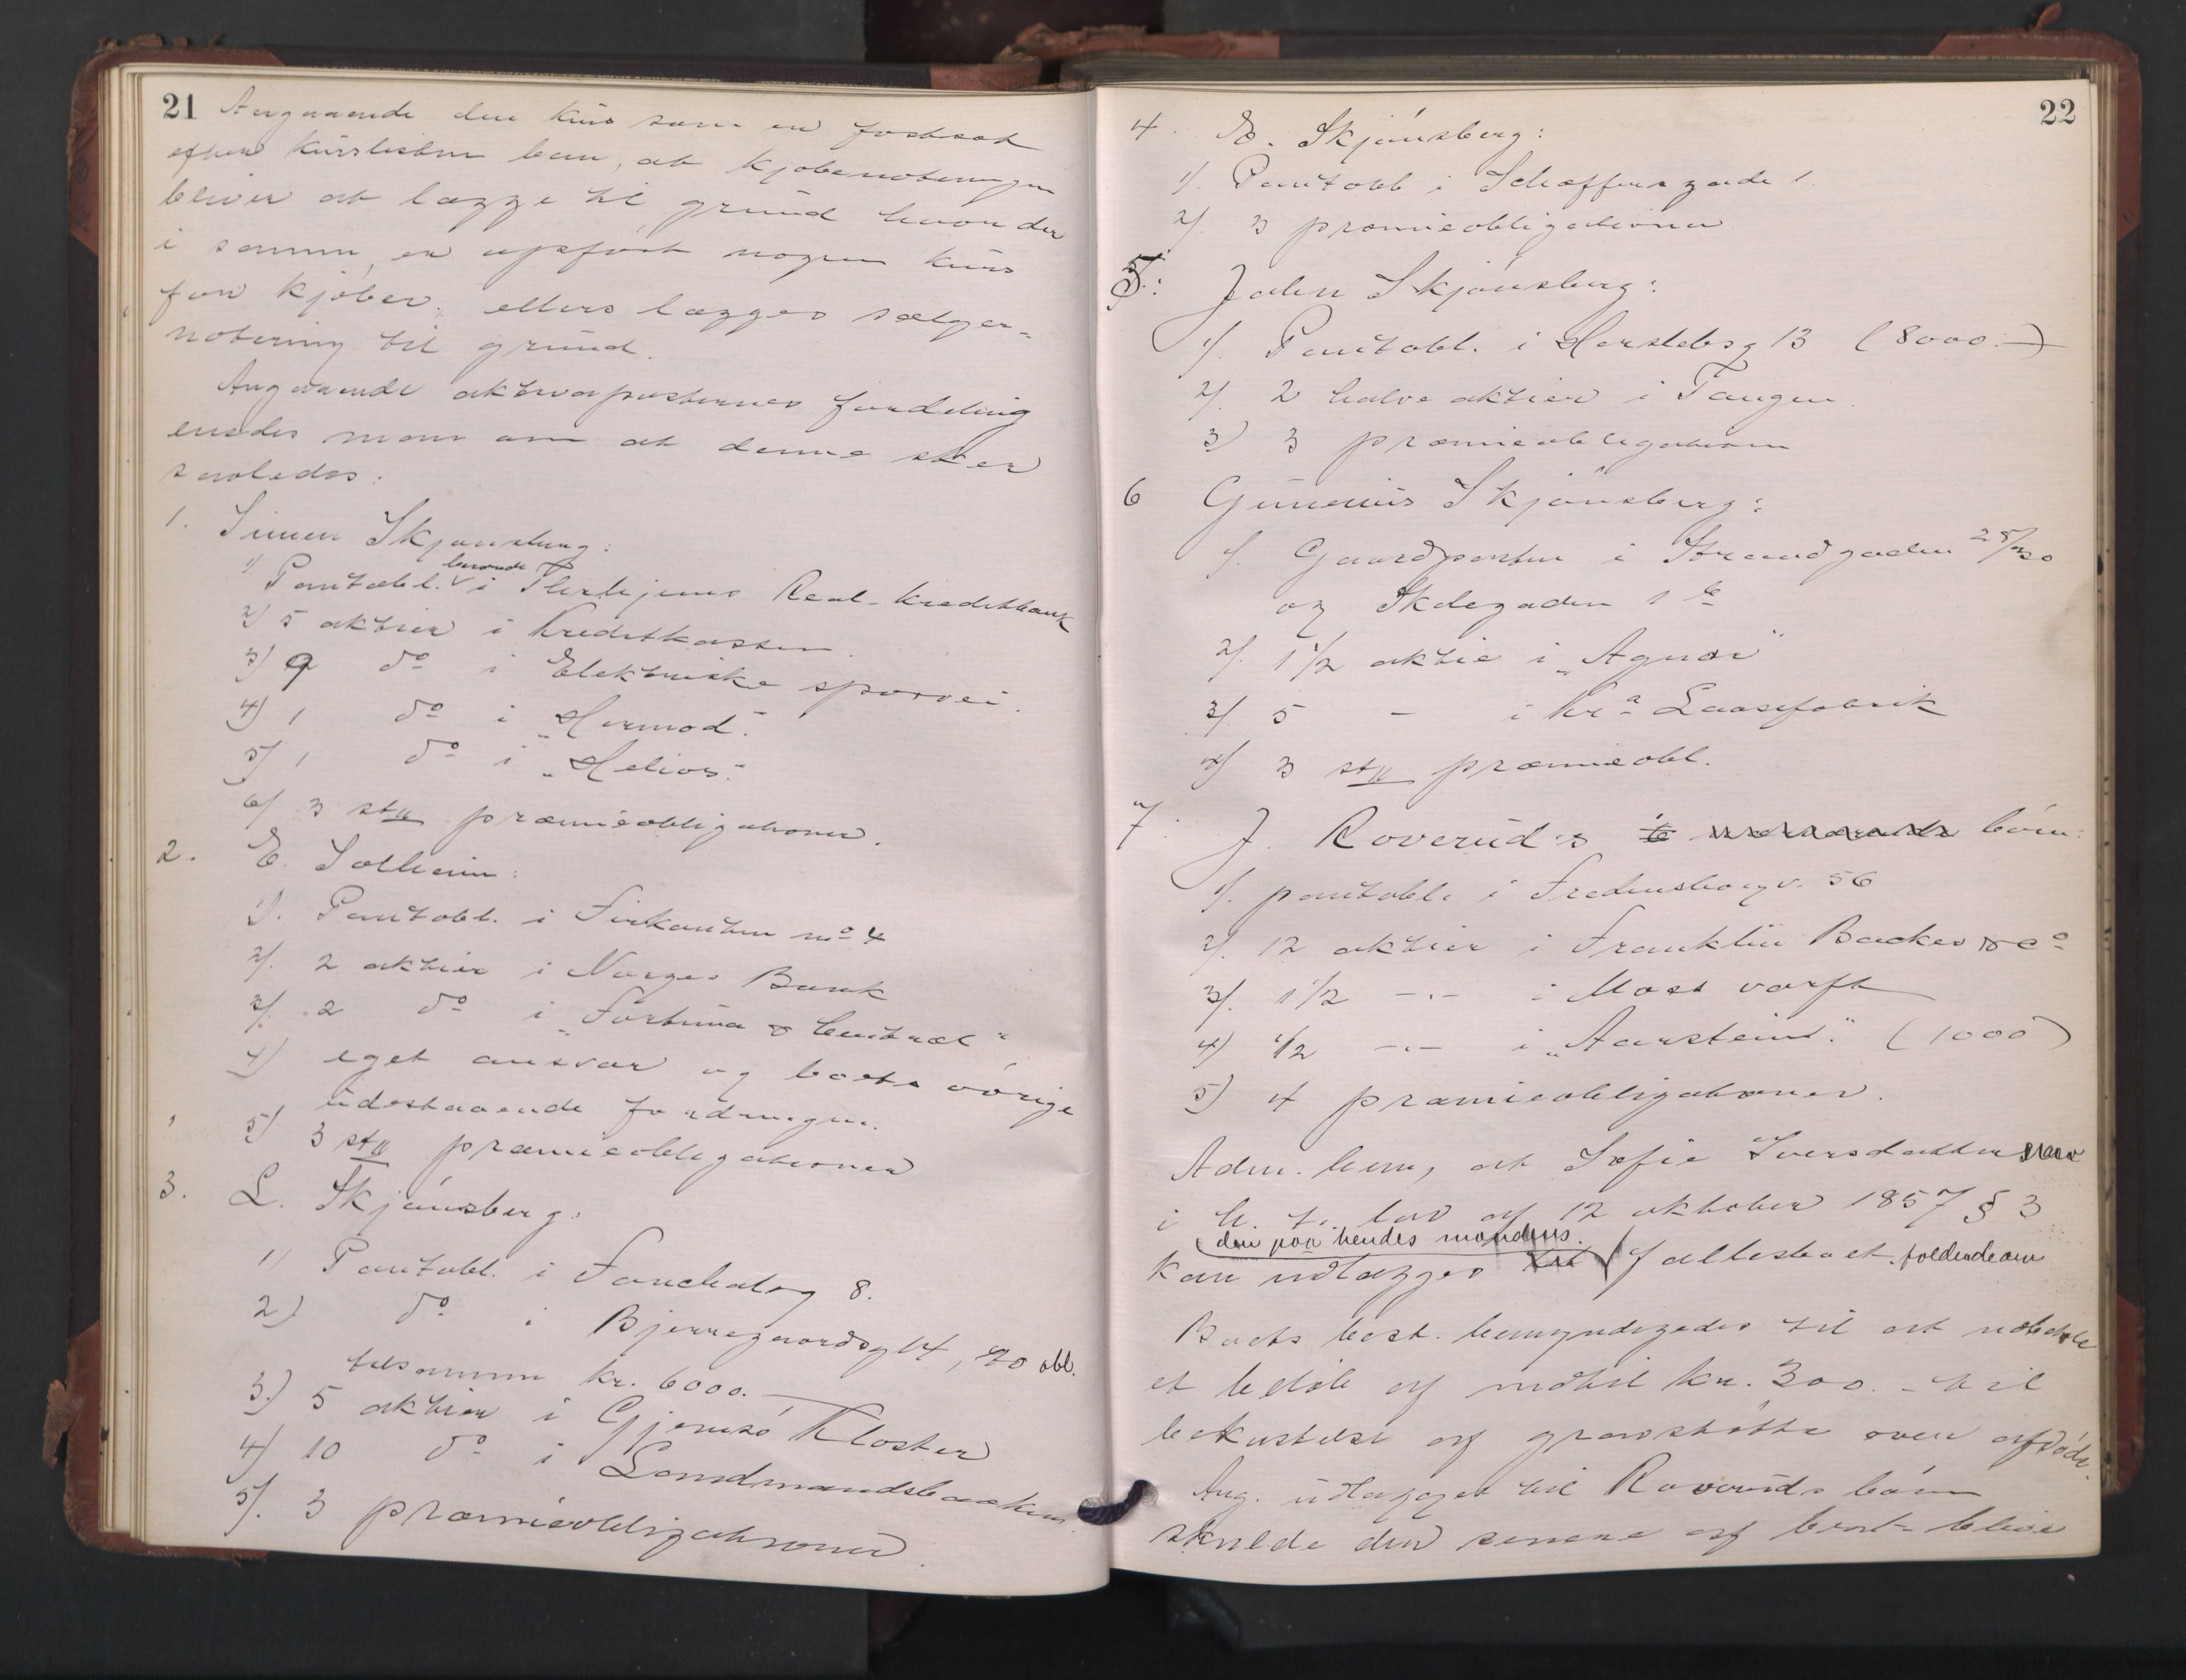 21
Angaaende den kurs som er fastsat
efter kurslisten bem, at kjøbernoteringen
bliver at lægge til grund hvor der
i samme er opført nogen kurs
for kjøber, ellers lægges sælger-
notering til grund.
Angaaende aktivaposternes fordeling
enedes man om at denne sker
saaledes:
1. Simen Skjønsberg:
1) Pantobl. beroende i Realkreditbank
2) 5 aktier i Kreditkassen.
3) 9 do i Elektriske sporvei.
4) 1 do i „Hermod".
5) 1 do i „Helios".
6) 3 stk præmieobligationer.
2. E. Solheim:
1). Pantobl. i Firkanten no 4
2/. 2 aktier i Norges Bank
3/. 2 do i „Fortuna & Central"
4) eget ansvar og boets øvrige
udestaaende fordringer.
5) 3 stk præmieobligationer
3. L. Skjønsberg:
1) Pantobl. i Fouchaldsg 8.
2) do i Bjerregaardsg 14, obl.
tilsammen kr. 6000.—
3.) 5 aktier i Gjemsø Kloster
4) 10 do i Landmandsbanken.
5/. 3 præmieobligationer.
22
4. E. Skjønsberg:
1/. Pantobl i Schæffers gade 1.
2/. 3 præmieobligationer
5: John Skjønsberg:
1/. Pantobl. i Herslebsg 13 (8000.—)
2/. 2 halve aktier i Tangen.
3) 3 præmieobligationer
6 Gunerius Skjønsberg:
1/. Gaardparten i Strandgaden
og Skolegaden 1 b
2/. 1 1/2 aktie i „Agnar"
3/. 5 — i Kra Laasefabrik
4) 3 stk præmieobl.
7. J. Roverud's børn:
1/. pantobl. i Fredensborgv. 56
2/. 12 aktier i Franklin Backes & Co
3/. 1 1/2 —"— i Moss værft
4) 1/2 —"— i „Aarstein". (1000)
5) 4 præmieobligationer.
Adm. bem, at Sofie Iversdatter
i h. t. lov af 12 oktober 1857 § 3
den paa hendes mandens
kan udlægges fællesboet faldende arv
Boets best. bemyndigedes til at udbetale
et beløb af indtil kr. 300.— til
bekostelse af gravstøtte over afdøde.
Ang. udlægget til Roveruds børn
skulde den senere af bli